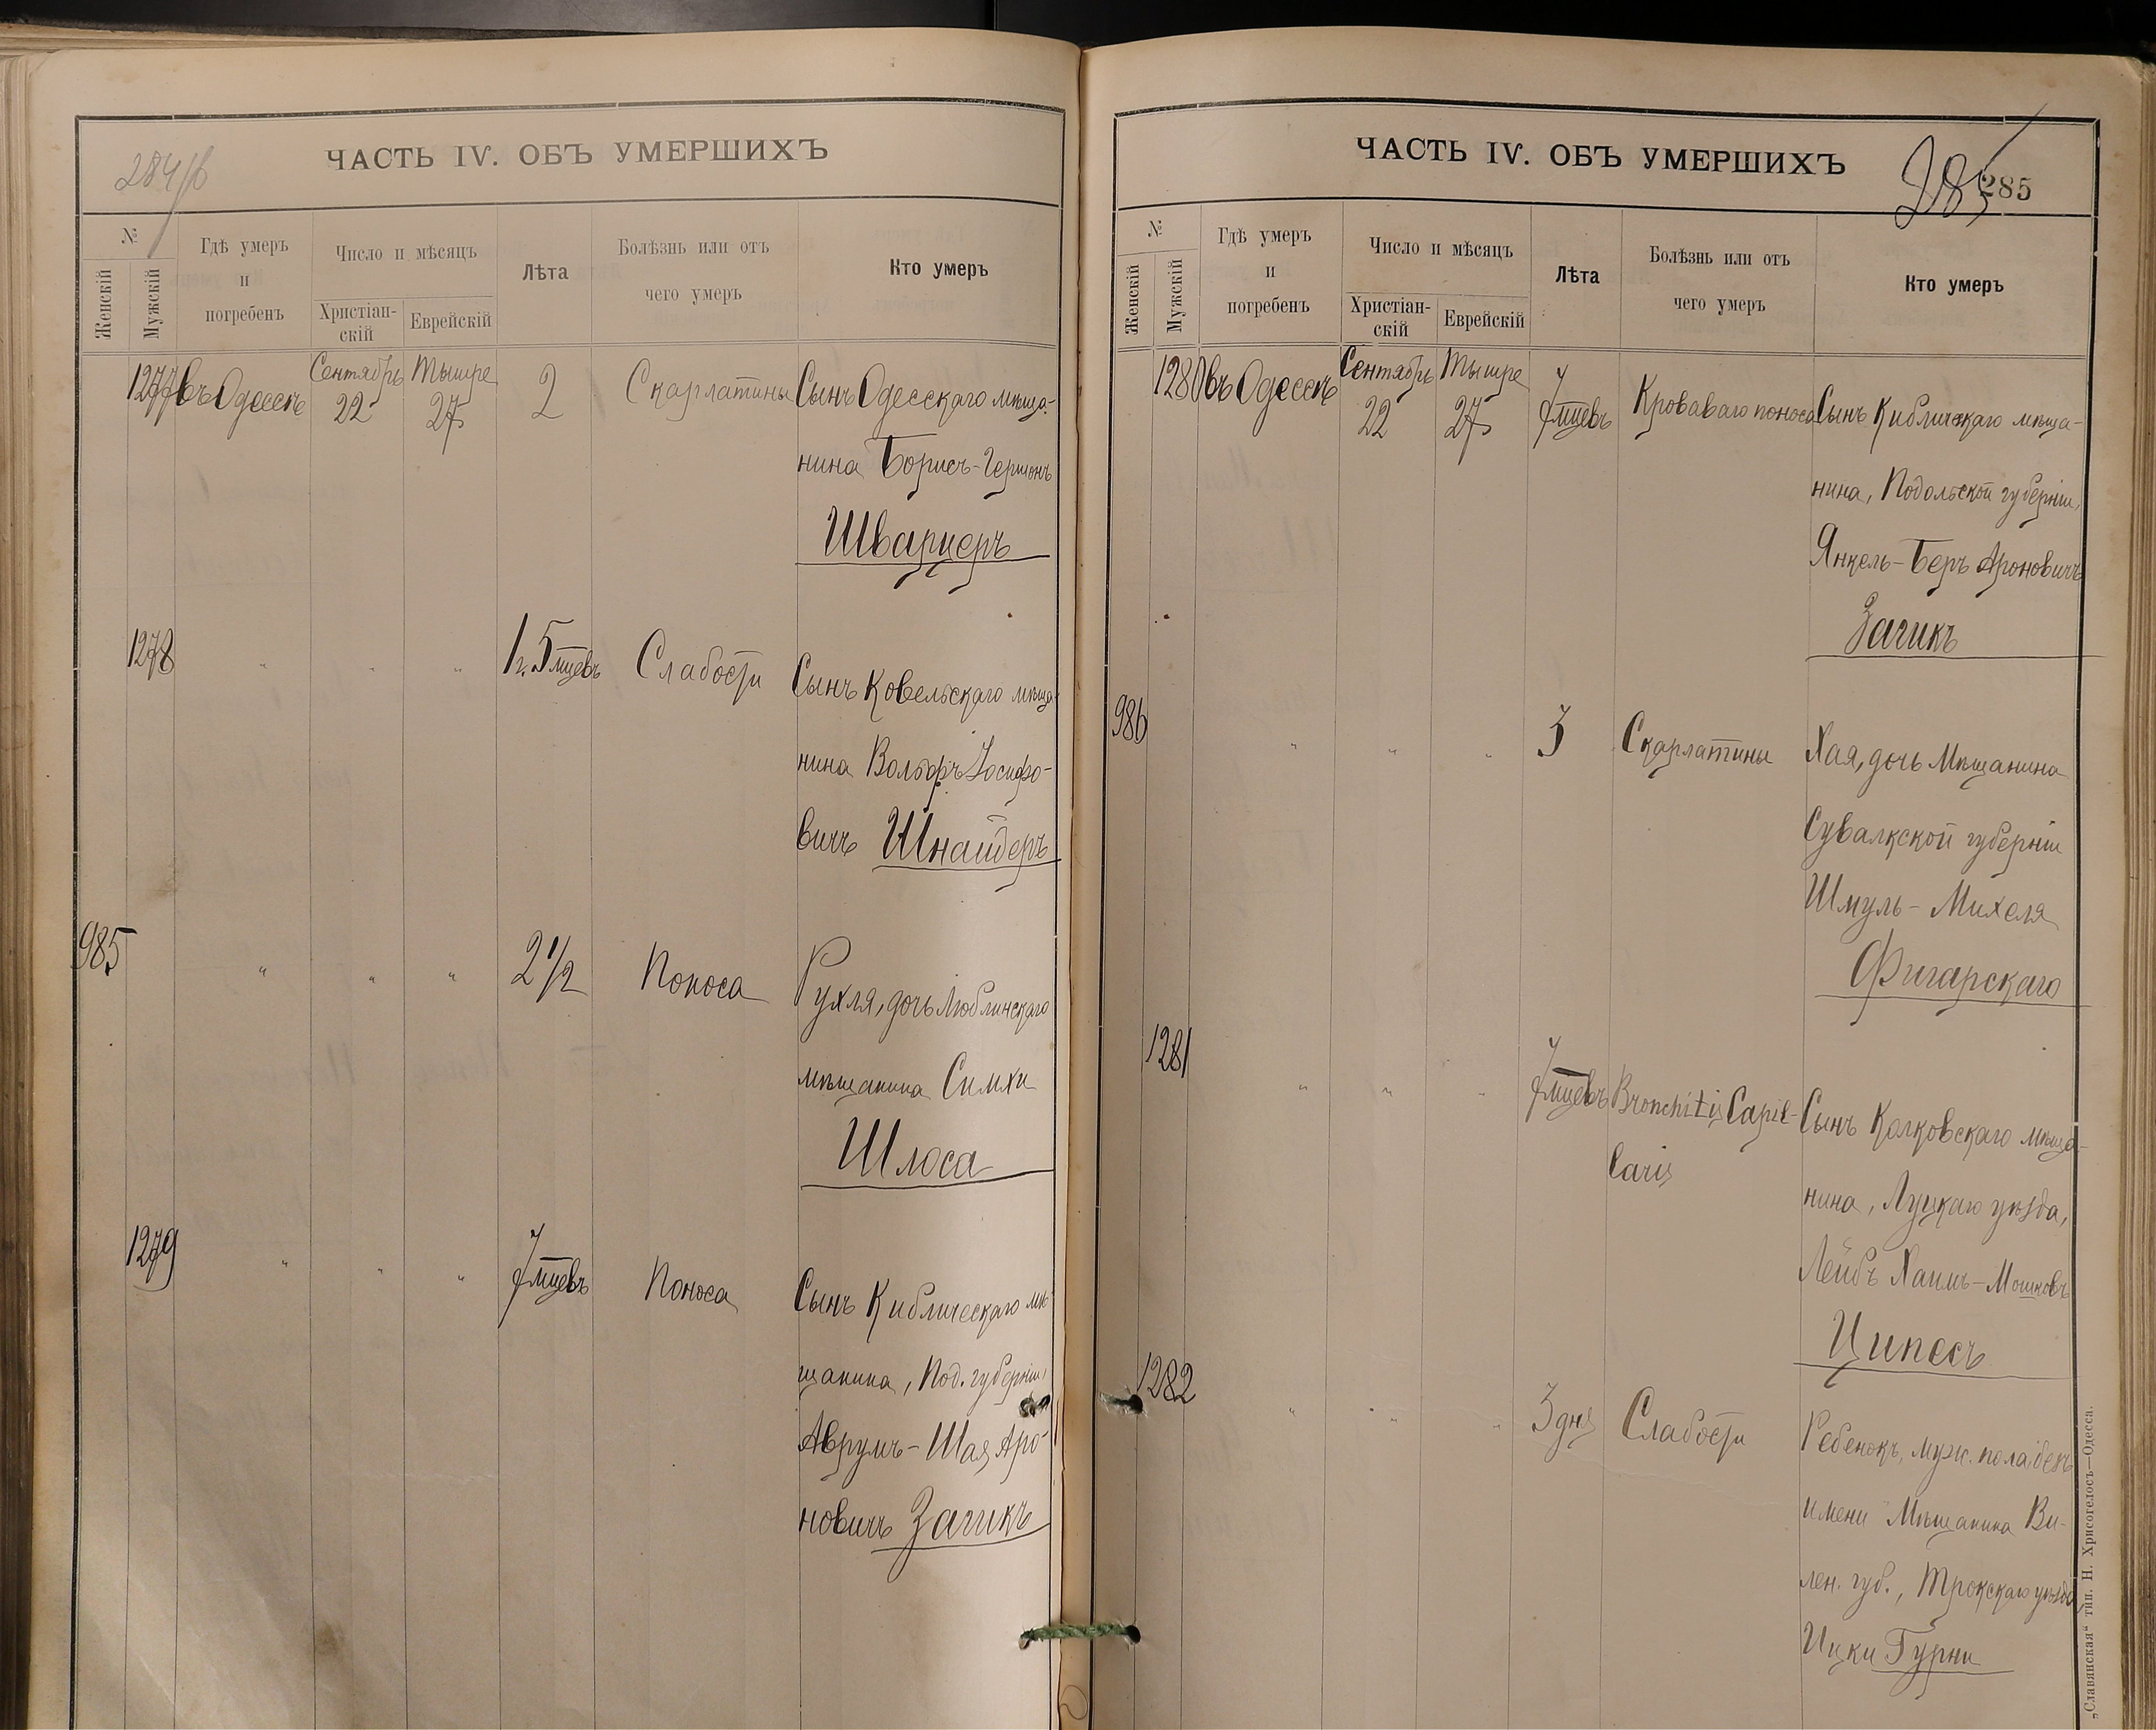 284/б
ЧАСТЬ IV. ОБЪ УМЕРШИХЪ
№
Женскій
Мужскій
Гдѣ умеръ
и
погребенъ
Число и мѣсяцъ
Христіан-
скій
Еврейскій
Лѣта
Болѣзнь или отъ
чего умеръ
Кто умеръ
1277 въ Одессѣ Сентябрь 22 Тышре 27 2 Скарлатины Сынъ Одесскаго мѣща-
нина Борисъ-Гершонъ
Шварцеръ
1278 " " " 1 г. 5 мцевъ Слабости Сынъ Ковельскаго мѣща-
нина Вольфъ Іосифо-
вичъ Шнайдеръ
985 " " " 2 1/2 Поноса Рухля, дочь Люблинскаго
мѣщанина Симхи
Шлоса
1279 " " " 7 мцевъ Поноса Сынъ Киблическаго мѣ-
щанина, Под. губерніи,
Аврумъ-Шая Аро-
новичъ Зачикъ
ЧАСТЬ IV. ОБЪ УМЕРШИХЪ
285
285
№
Женскій
Мужскій
Гдѣ умеръ
и
погребенъ
Число и мѣсяцъ
Христіан-
скій
Еврейскій
Лѣта
Болѣзнь или отъ
чего умеръ
Кто умеръ
1280 въ Одессѣ Сентябрь 22 Тышре 27 7 мцевъ Кроваваго поноса Сынъ Кибличскаго мѣща-
нина, Подольской губерніи,
Янкель-Беръ Ароновичъ
Зачикъ
986 " " " 3 Скарлатины Хая, дочь Мѣщанина
Сувалкской губерніи
Шмуль-Михеля
Фигарскаго
1281 " " " 7 мцевъ Bronchitis Capil- Сынъ Колковскаго мѣща-
laris
нина, Луцкаго уѣзда,
Лейбъ Хаимъ-Мошковъ
Ципесъ
1282 " " " 3 дня Слабости Ребенокъ, муж. пола безъ
имени Мѣщанина Ви-
лен. губ., Трокскаго уѣзда
Ицки Гурни
„Славянская" тип. Н. Хрисогелосъ—Одесса.